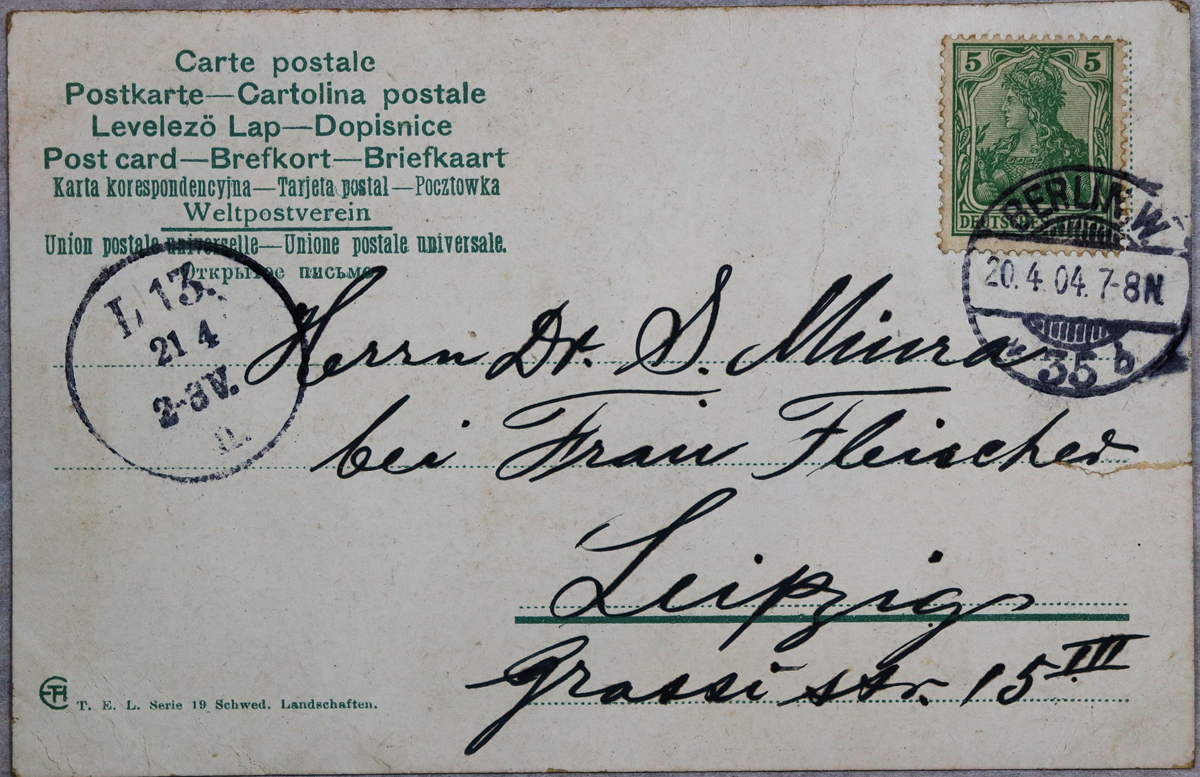 Carte postale
Postkarte—Cartolina postale
Levelező Lap—Dopisnice
Post card—Brefkort—Briefkaart
Karta korespondencyjna—Tarjeta postal—Pocztowka
Weltpostverein
Union postale universelle—Unione postale universale.
Открытое письмо
5 5
DEUTSCHES
BERLIN W
20.4.04.7-8N
* 35 b
L 13.
21 4
2-3V.
Herrn Dr. S. Miura
bei Frau Fleischer
Leipzig
Grassi str. 15 III
T. E. L. Serie 19 Schwed. Landschaften.